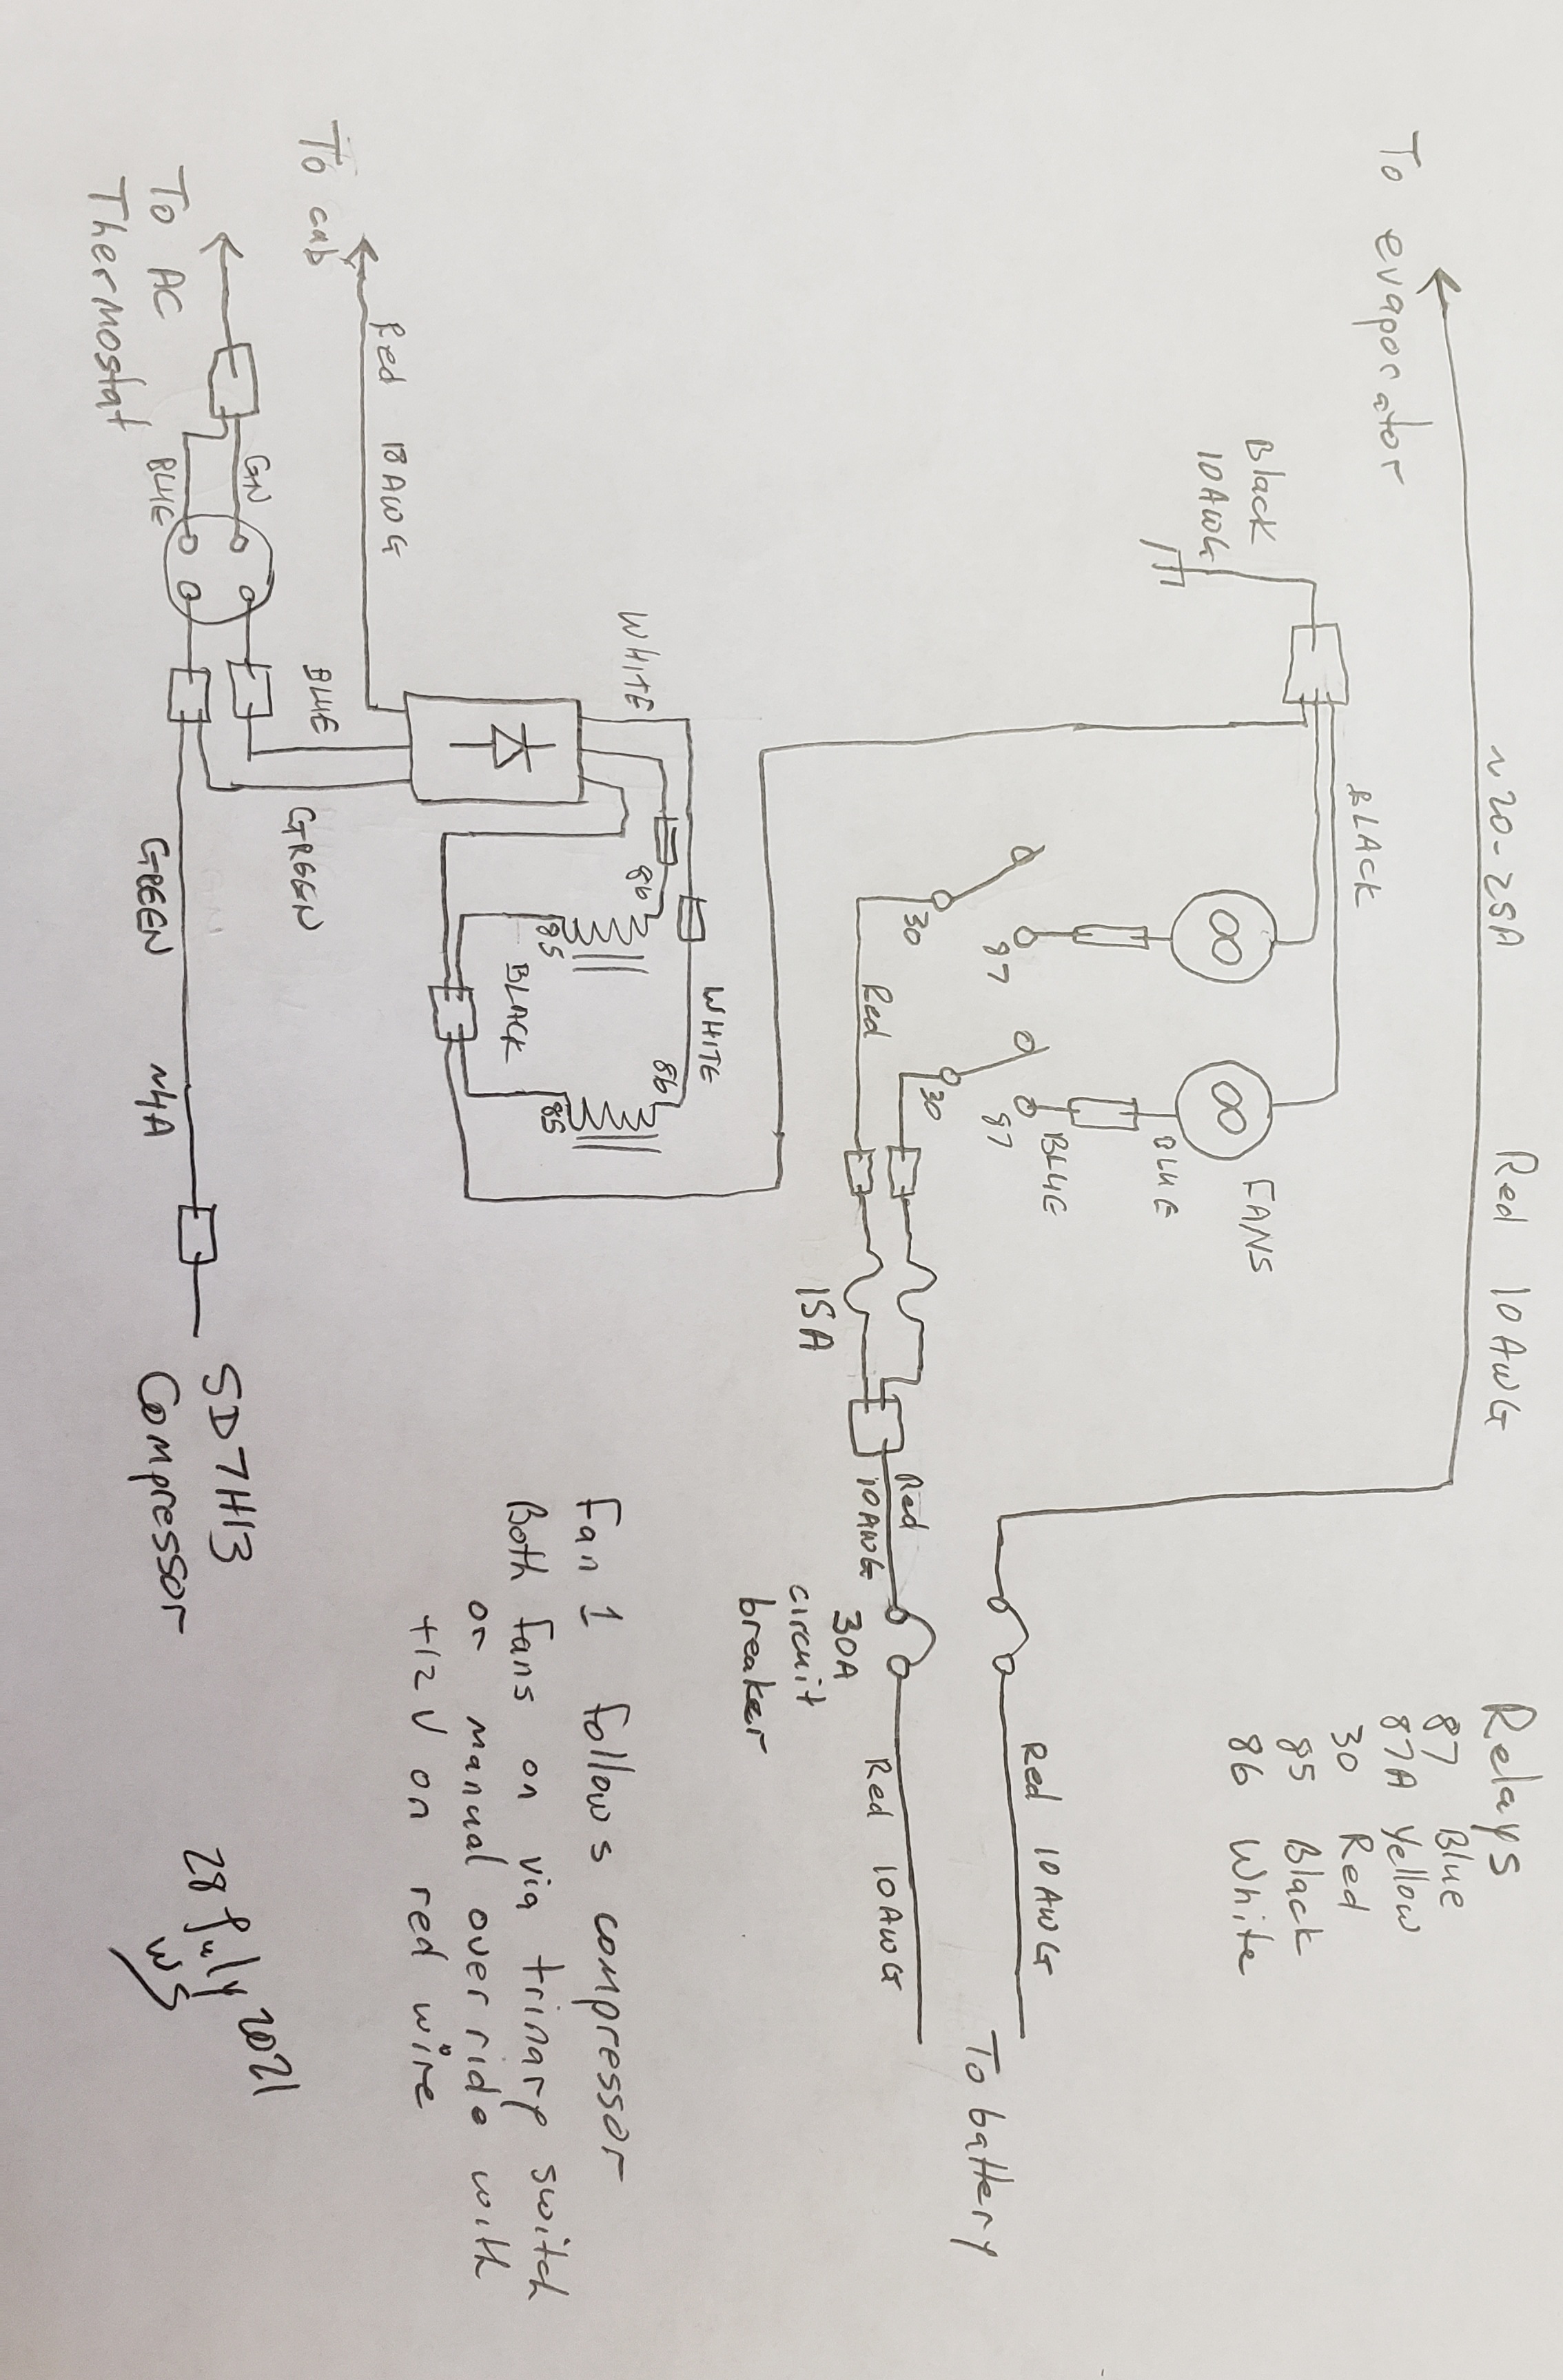 To evaporator
~20-25A
Red 10AWG
Relays
87 Blue
87A Yellow
30 Red
85 Black
86 White
Black
10AWG
BLACK
FANS
BLUE
BLUE
87
87
30
30
Red
15A
Red
10AWG
30A
circuit
breaker
Red 10AWG
Red 10AWG
To battery
WHITE
WHITE
86
86
85
85
BLACK
To cab
Red 18AWG
BLUE
GREEN
To AC
Thermostat
GN
BLUE
GREEN
~4A
SD7H13
Compressor
Fan 1 follows compressor
Both fans on via trinary switch
or manual over ride with
+12V on red wire
28 July 2021
WS